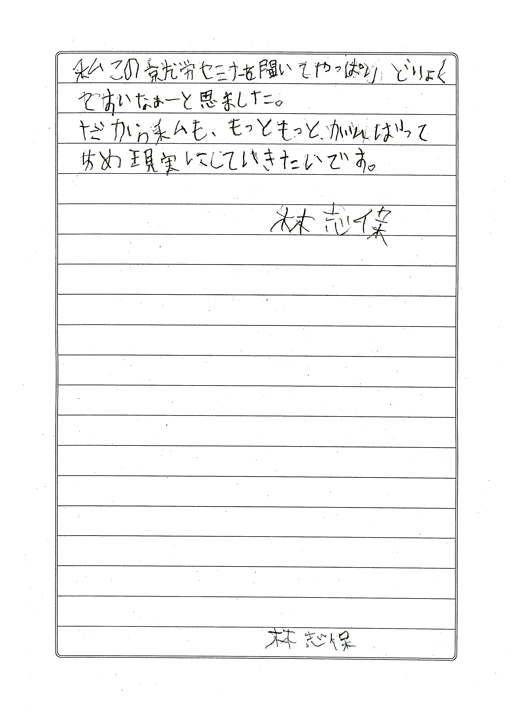 私この就労セミナーを聞いてやっぱり、どりょく
ですいなぁーと思ました。
だから私も、もっともっと、がんばって
おめ現実にしていきたいです。
林志保
林志保